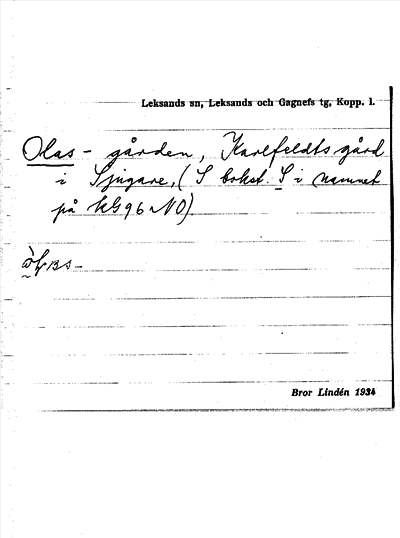 Leksands sn, Leksands och Gagnefs tg, Kopp. l.
Olas-gården, Karlfeldts gård
i Sjugare, (S bokst. S i namnet
på kG 96 NO)
Bror Lindén 1934